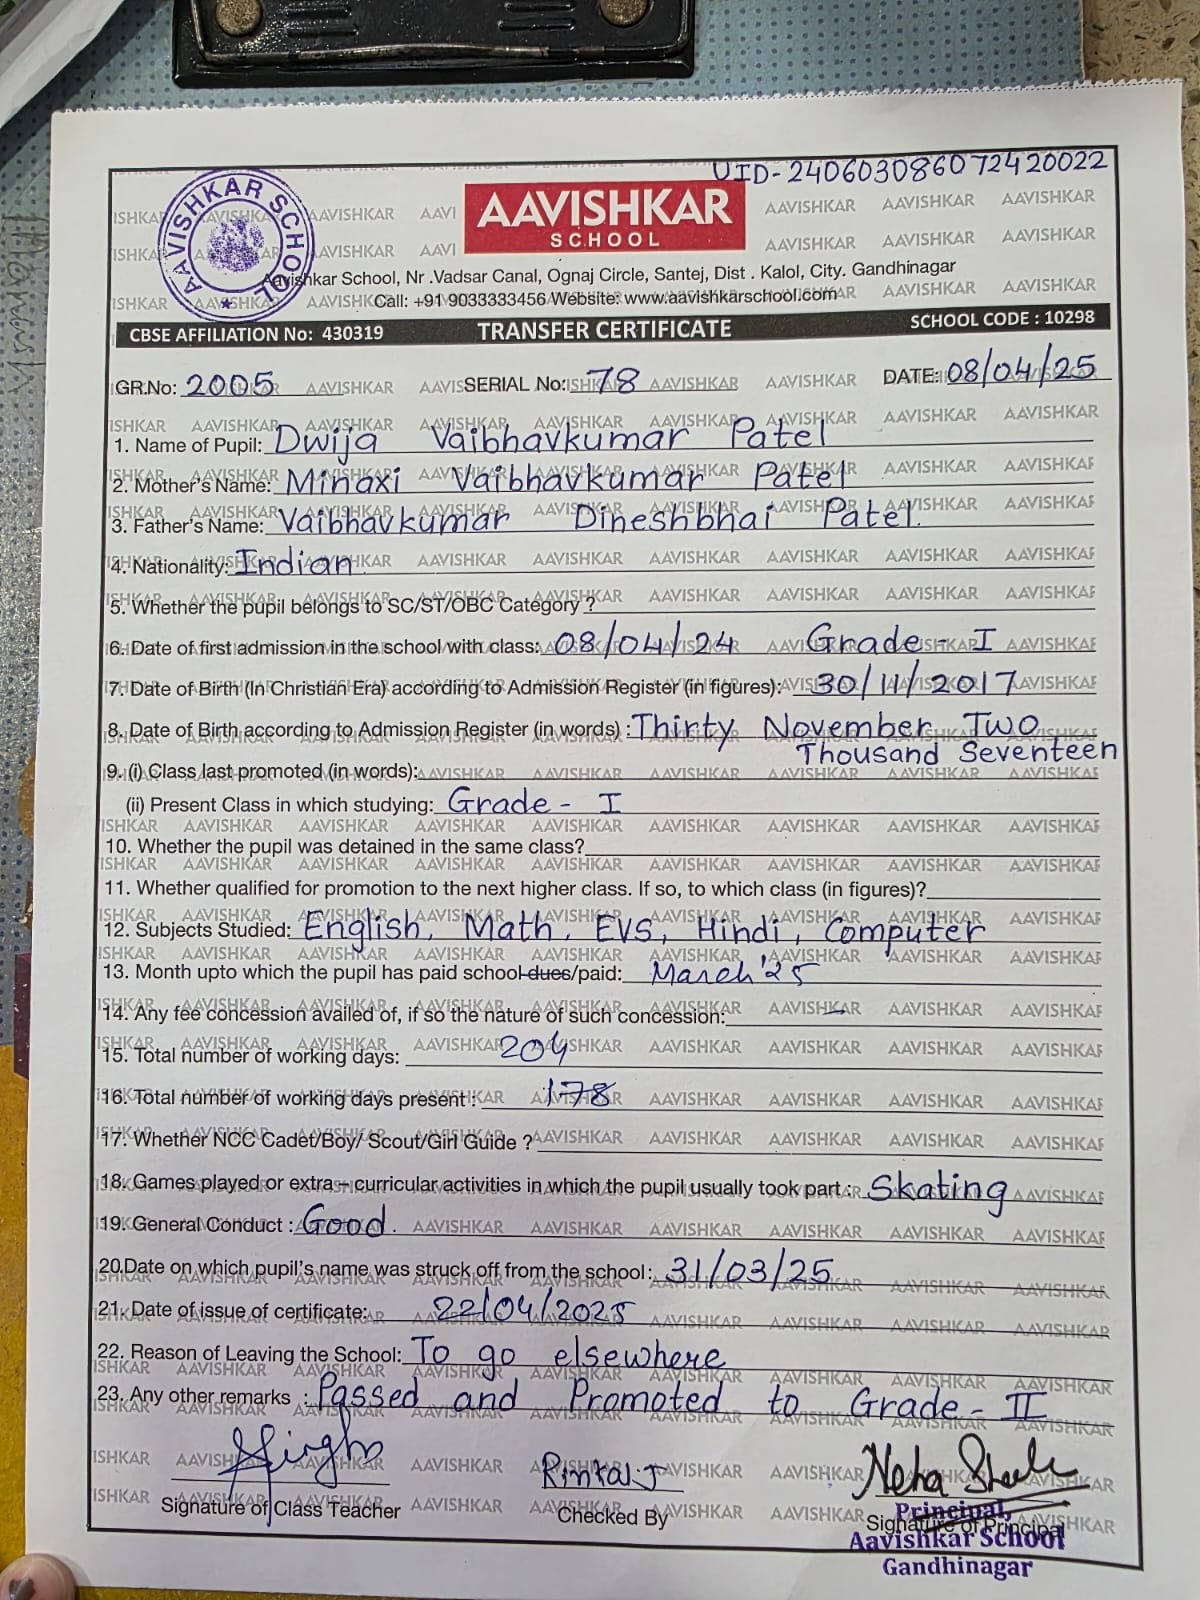 UID-240603086072420022
AAVISHKAR SCHOOL
AAVISHKAR
SCHOOL
Aavishkar School, Nr .Vadsar Canal, Ognaj Circle, Santej, Dist . Kalol, City. Gandhinagar
Call: +91 9033333456 Website: www.aavishkarschool.com
CBSE AFFILIATION No: 430319 TRANSFER CERTIFICATE SCHOOL CODE : 10298
GR.No: 2005 SERIAL No: 78 DATE: 08/04/25
1. Name of Pupil: Dwija Vaibhavkumar Patel
2. Mother's Name: Minaxi Vaibhavkumar Patel
3. Father's Name: Vaibhavkumar Dineshbhai Patel.
4. Nationality: Indian
5. Whether the pupil belongs to SC/ST/OBC Category ?
6. Date of first admission in the school with class: 08/04/24 Grade - I
7. Date of Birth (In Christian Era) according to Admission Register (in figures): 30/11/2017
8. Date of Birth according to Admission Register (in words) : Thirty November Two
Thousand Seventeen
9. (i) Class last promoted (in words):
(ii) Present Class in which studying: Grade - I
10. Whether the pupil was detained in the same class?
11. Whether qualified for promotion to the next higher class. If so, to which class (in figures)?
12. Subjects Studied: English, Math, EVS, Hindi, Computer
13. Month upto which the pupil has paid school dues/paid: March '25
14. Any fee concession availed of, if so the nature of such concession: -
15. Total number of working days: 204
16. Total number of working days present : 178
17. Whether NCC Cadet/Boy/ Scout/Girl Guide ?
18. Games played or extra – curricular activities in which the pupil usually took part : Skating
19. General Conduct : Good.
20.Date on which pupil's name was struck off from the school: 31/03/25
21. Date of issue of certificate: 22/04/2025
22. Reason of Leaving the School: To go elsewhere
23. Any other remarks : Passed and Promoted to Grade - II
Rinkal.T
Signature of Class Teacher Checked By Signature of Principal
Principal,
Aavishkar School
Gandhinagar